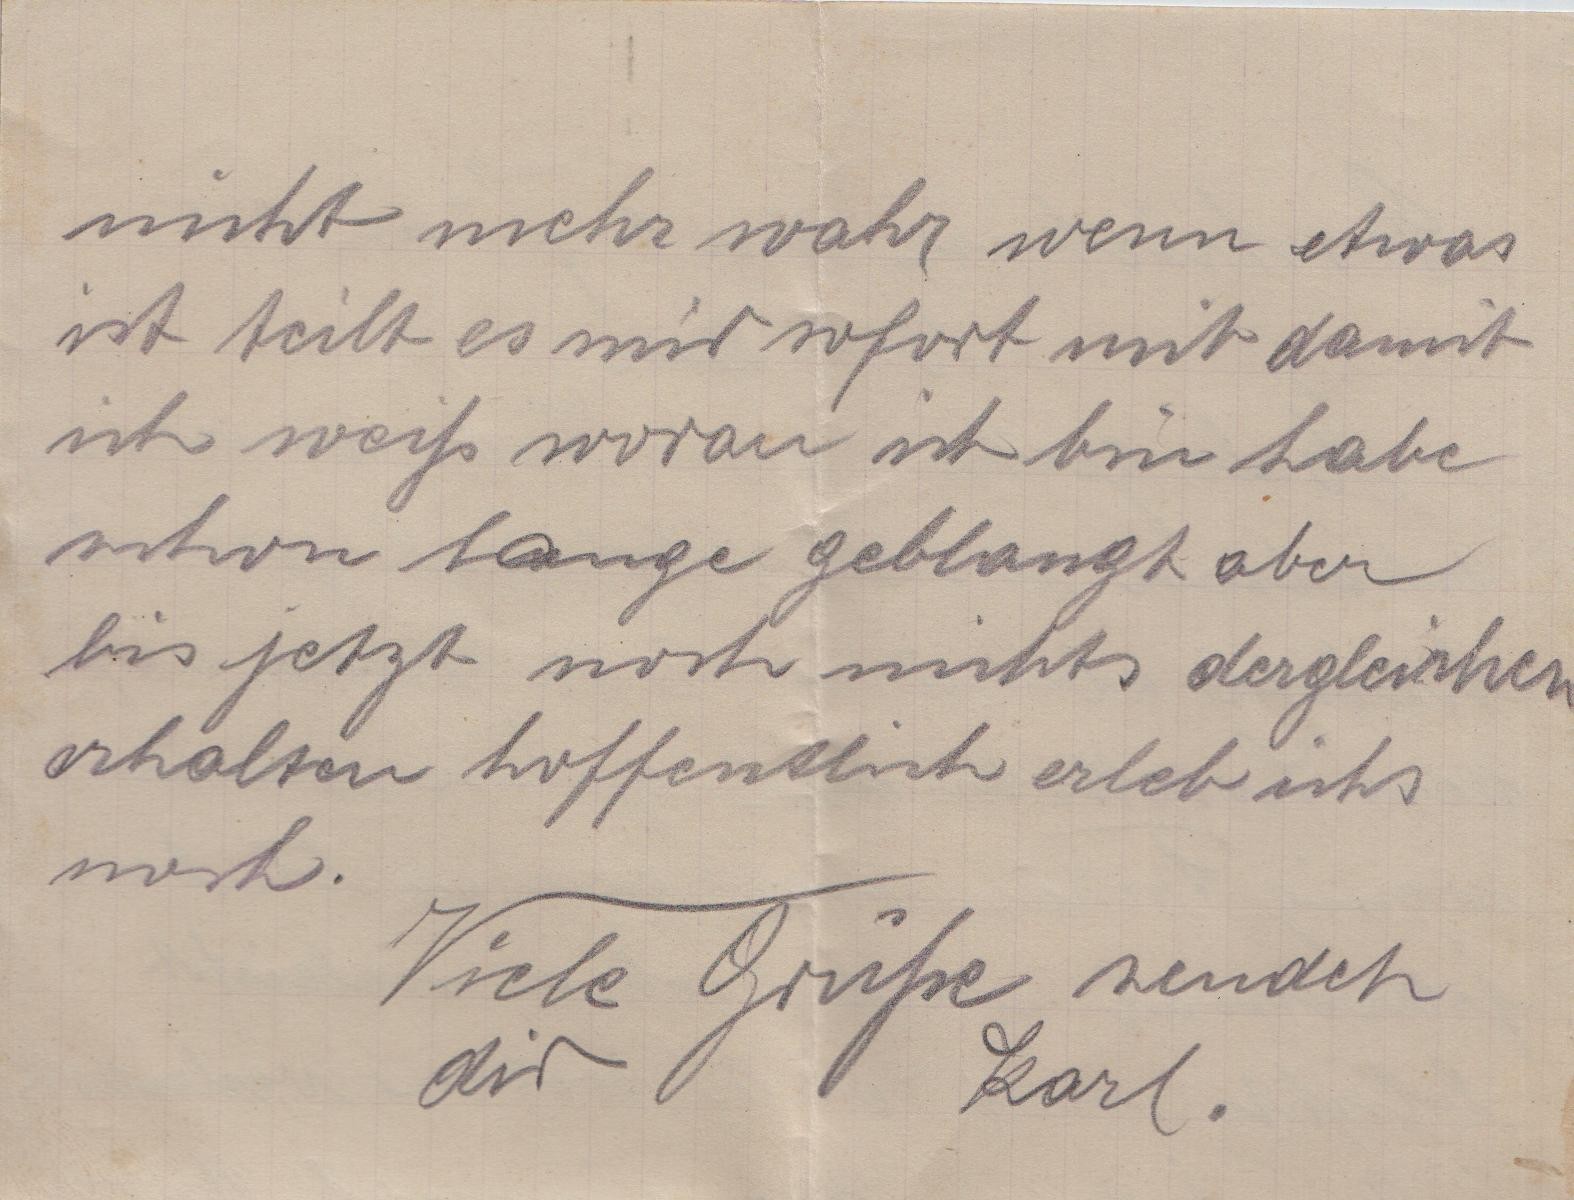 nicht mehr wahr wenn etwas
ist teilt es mir sofort mit damit
ich weiß woran ich bin habe
schon lange geblangt aber
bis jetzt noch nichts dergleichen
erhalten hoffentlich erleb ichs
noch.
Viele Grüße sendet
dir Karl.